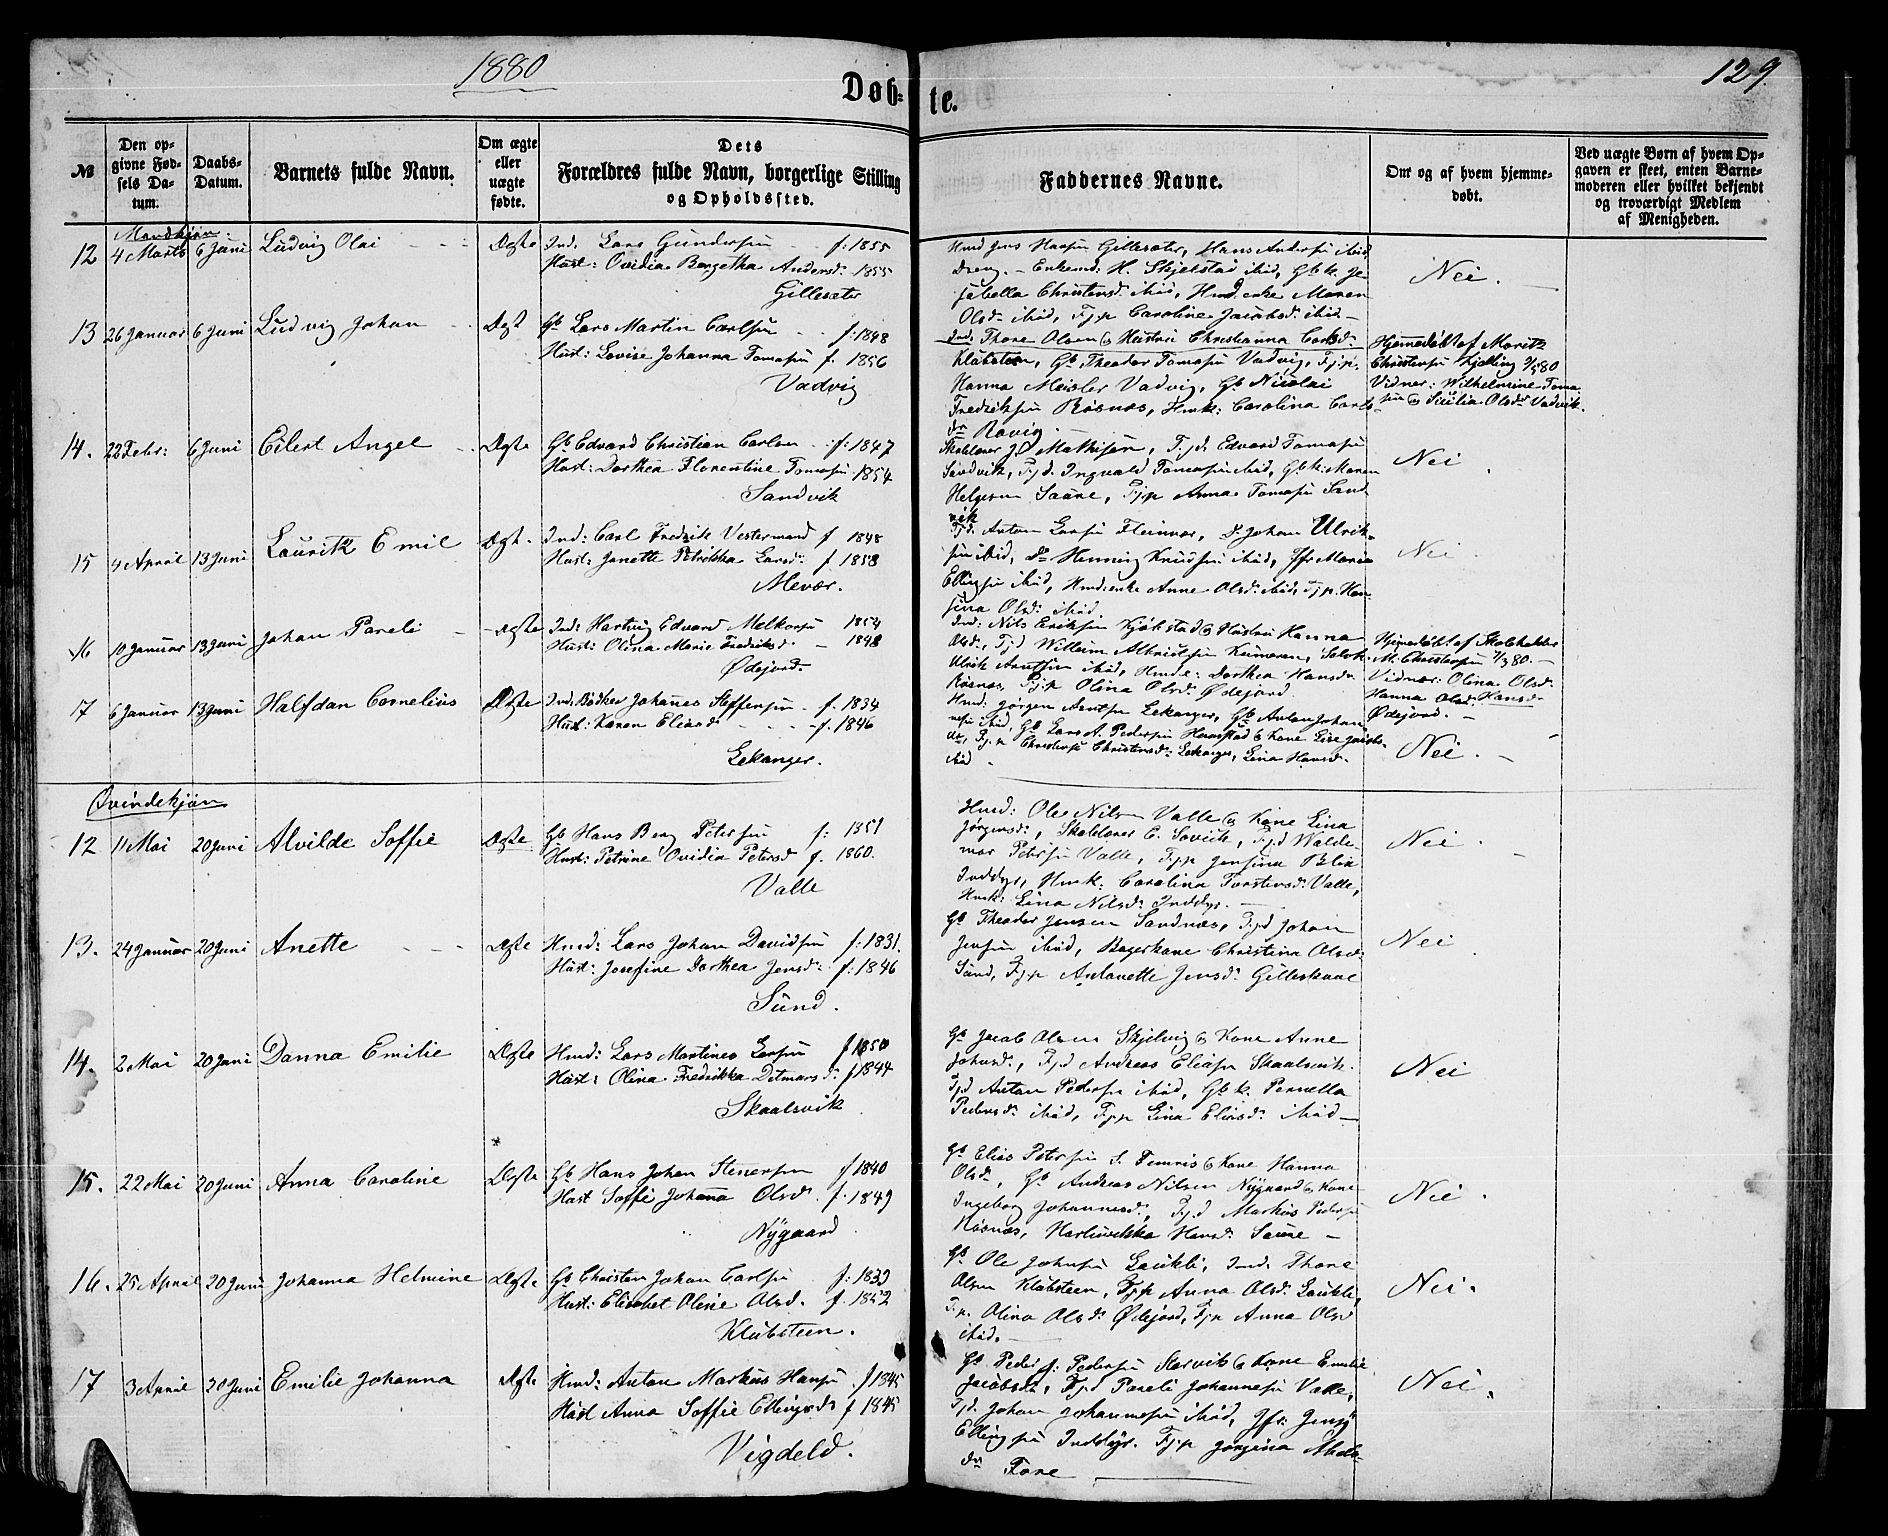 1880
129.
Døb-
te.
№
Den op-
givne Fød-
sels Da-
tum.
Daabs-
Datum.
Barnets fulde Navn.
Om ægte
eller
uægte
fødte.
Dets
Forældres fulde Navn, borgerlige Stilling
og Opholdssted.
Faddernes Navne.
Om og af hvem hjemme-
døbt.
Ved uægte Børn af hvem Op-
gaven er skeet, enten Barne-
moderen eller hvilket bekjendt
og troværdigt Medlem
af Menigheden.
Mandkjøn:
12 4 Marts 6 Juni Ludvig Olai Ægte Ind. Lars Gundersen f: 1855
Hust: Ovidia Bergetha Andersd: 1855
Gillesæter
Hmd Jens Hansen Gillesæter, Hans Andersen ibid
Dreng. - Enkemd: H. Skjelstad ibid, Gbk. Je-
sabella Christensd: ibid, Hmd enke Maren
Olsd: ibid, Pige Caroline Jacobsd: ibid -
Nei.
13 26 Januar 6 Juni Ludvig Johan Ægt Gb Lars Martin Carlsen f: 1848
Hust: Lovise Johanna Tomasen f. 1856
Vadvig
Ind: Thore Olsen & Hustru Christianna Carlsd:
Klubsteen, Gb. Theodor Tomasen Vadvig, Pige
Hanna Meisler Vadvig, Gb Nicolai
Fredriksen Røsnæs, Hmk: Carolina Carls-
dr Ravig.
Hjemedøbt af Moritz
Christensen Kjelling 3/5 80
Vidner: Wilhelmine Toma
sen & Sicilia Olsdr Vadvik.
14. 22 Febr: 6 Juni Eilert Angel Ægte Gb Edvard Christian Carlsen f: 1847
Hust: Dorthea Florentine Tomasen 1854
Sandvik
Skolelærer J. Mathisen, F.j.d. Edvard Tomasen
Sandvik, F.j.d. Ingvald Tomasen ibid, Gbk: Maren
Helgesen Saure, F.j.p Anna Tomasen Sand
vik
Nei
15 4 April 13 Juni Lauritz Emil Ægt. Ind: Carl Fredrik Vestermand f 1848
Hust: Janette Petrikka Larsd: f 1858
Mevær.
F.j.d. Anton Larsen Fleinvær, do Johan Ulrik-
sen ibid, do Henning Knudsen ibid, Jfr Maria
Ellingsen ibid, Hmd:enke Anne Olsd: ibid, F.j.p. Han-
sina Olsd: ibid
Nei
16 10 Januar 13 Juni Johan Pareli Ægte Ind: Hartvig Edvard Melkersen 1854
Hust: Olina Marie Fredriksd 1848
Ødejord.
Ind: Nils Eriksen Kjøkstad & Hustru Hanna
Olsd:, F.j.d Willum Albrigtsen Kumeren, Selvk.
Ulrik Arntsen ibid, Hmd: Dorthea Hansdr
Røsnæs, F.j.p Olina Olsdr Ødejord
Hjemedøbt af Skoleholder
M. Christensen 1/3 80. -
Vidner: Olina Olsd:
Hanna Olsd: Hansdr
Ødejord. -
17 6 Januar 13 Juni Halfdan Cornelius Ægte Ind: Bødker Johanes Steffensen f. 1834
Hust: Karen Eliasd f. 1846
Lekanger.
Hmd: Jørgen Arntsen Lekanger, Gb. Anton Johan
nesen ibid, Gb Lars A. Pedersen Havnstad & Kone Lise Jacobs-
dr, F.j.p Christense Christensd: Lekanger, Lina Hansd.
ibid -
Nei.
Qvindekjøn
12 11 Mai 20 Juni Alvilde Soffie Ægte Gb Hans Berg Petersen f: 1851
Hust: Petrine Ovidia Petersd f. 1860.
Valle
Hmd: Ole Nilsen Valle & Kone Lina
Jørgensd:, Skolelærer C. Sovik, F.j.d Walde-
mar Petersen Valle, F.j.p Jensina Blix
Inddyr, Hmk: Carolina Torstensd: Valle,
Hmk: Lina Nilsd: Inddyr. -
Nei
13. 24 Januar 20 Juni Anette Ægte Hmd: Lars Johan Davidsen f: 1831.
Hust: Josefine Dorthea Jensd: f: 1846
Sund.
Gb Theodor Jensen Sandnæs, F.j.d Johan
Jensen ibid, Bøgerkone Christina Olsd:
Sund, F.j.p Antonette Jensdr Gilleskaal
Nei
14. 2 Mai 20 Juni Danna Emilie Ægte Hmd: Lars Martines Larsen f 1850
Hust: Olina Fredrikka Ditmarsd: f 1844
Skaalsvik
Gb Jacob Olsen Skjelvig & Kone Anne
Johnsd:, F.j.d Andreas Eliasen Skaalsvik.
F.j.d Anton Pedersen ibid, Gbk. Pernella
Pedersdr ibid, F.j.p Lina Eliasd: ibid -
Nei
15. 22 Mai 20 Juni Anna Caroline Ægte Gb Hans Johan Stenersen f 1840
Hust Soffie Johanna Olsd. f. 1849
Nygaard
Gb Elias Petersen S. Femris & Kone Hanna
Olsdr, Gb Andreas Nilsen Nygaard & Kone
Ingeborg Johannesd:, F.j.d Markus Pedersen
Røsnæs, Hartvikka Hansd: Saure -
Nei.
16. 25 April 20 Juni Johanna Helmine Ægte Gb Christen Johan Carlsen f: 1839
Hust: Elisabet Oline Olsd. f. 1852
Klubsteen.
Gb Ole Johnsen Laukli, Ind. Thore
Olsen Klubsteen, F.j.p Anna Olsd: Laukli,
F.j.p. Olina Olsdr Ødejord, F.j.p Anna Olsd
ibid. -
Nei.
17 3 April 20 Juni Emilie Johanna Ægte Hmd: Anton Markus Hansen f 1845
Hust Anna Soffie Ellingsdr f 1845
Vigdeld.
Gb Peder J. Pedersen Storvik & Kone Emilie
Jacobsdr, F.j.d Pareli Johannesen Valle,
F.j.d. Johan Johannesen ibid, Jfr. Jensy
Ellingsen Inddyr. F.j.p Jørgina Abels-
dr Fore
Nei.